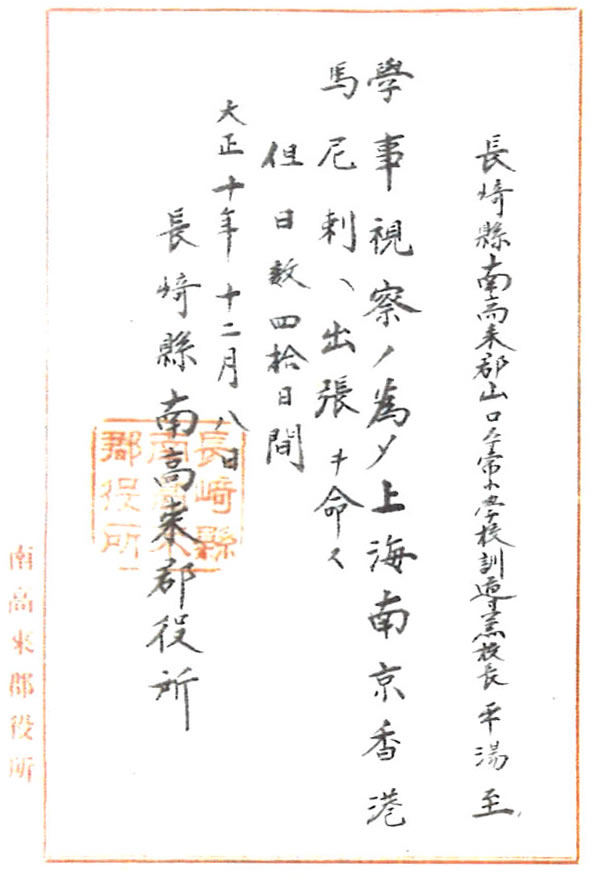 長崎縣南高来郡山口尋常小学校訓導兼校長 平湯至
學事視察ノ為メ上海南京香港
馬尼剌ヘ出張ヲ命ス
但日数四拾日間
大正十年十二月八日
長崎縣南高来郡役所
長崎縣
南高來
郡役所
南高來郡役所